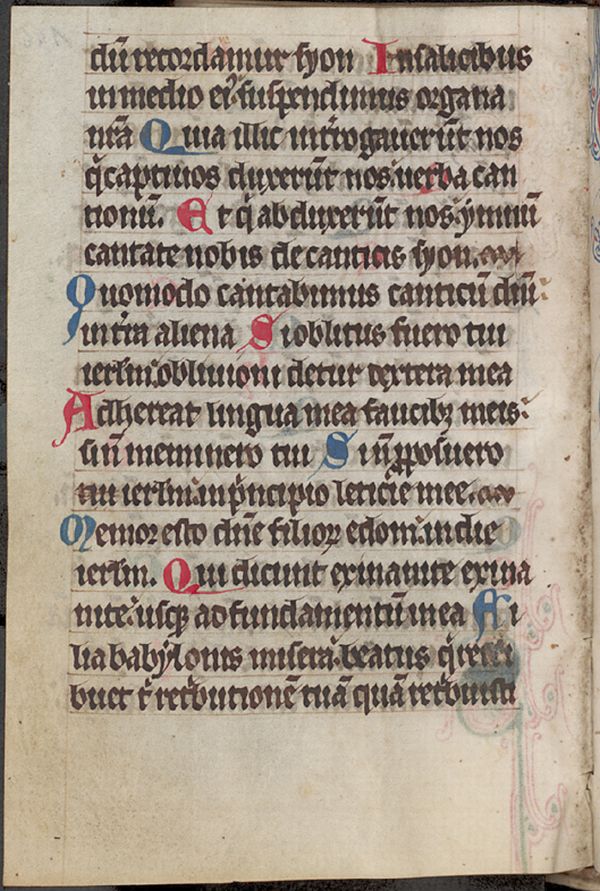 dū recordamur syon In salicibus
in medio ei᷒ suspendimus organa
nr̄a Quia illic int̄rogauerūt nos
q̄ captiuos duxerūt nos. uerba can
tionū. Et q̄ abduxerūt nos. ymnū
cantate nobis de canticis syon.
Quomodo cantabimus canticū dn̄i
in tr̄a aliena Si oblitus fuero tui
ierlm̄. obliuioni detur dextera mea
Adhereat lingua mea faucibꝫ meis:
si nō meminero tui Si nō ꝓposuero
tui ierlm̄. in p̄ncipio leticie mee.
Memor esto dn̄e filioꝝ edom. in die
ierlm̄. Qui dicunt exinanite exina
nite. usqꝫ ad fundamentū in ea Fi
lia babylonis misera. beatus q̄ retri
buet t̄ ret̄butionē tuā quā ret̄buisti